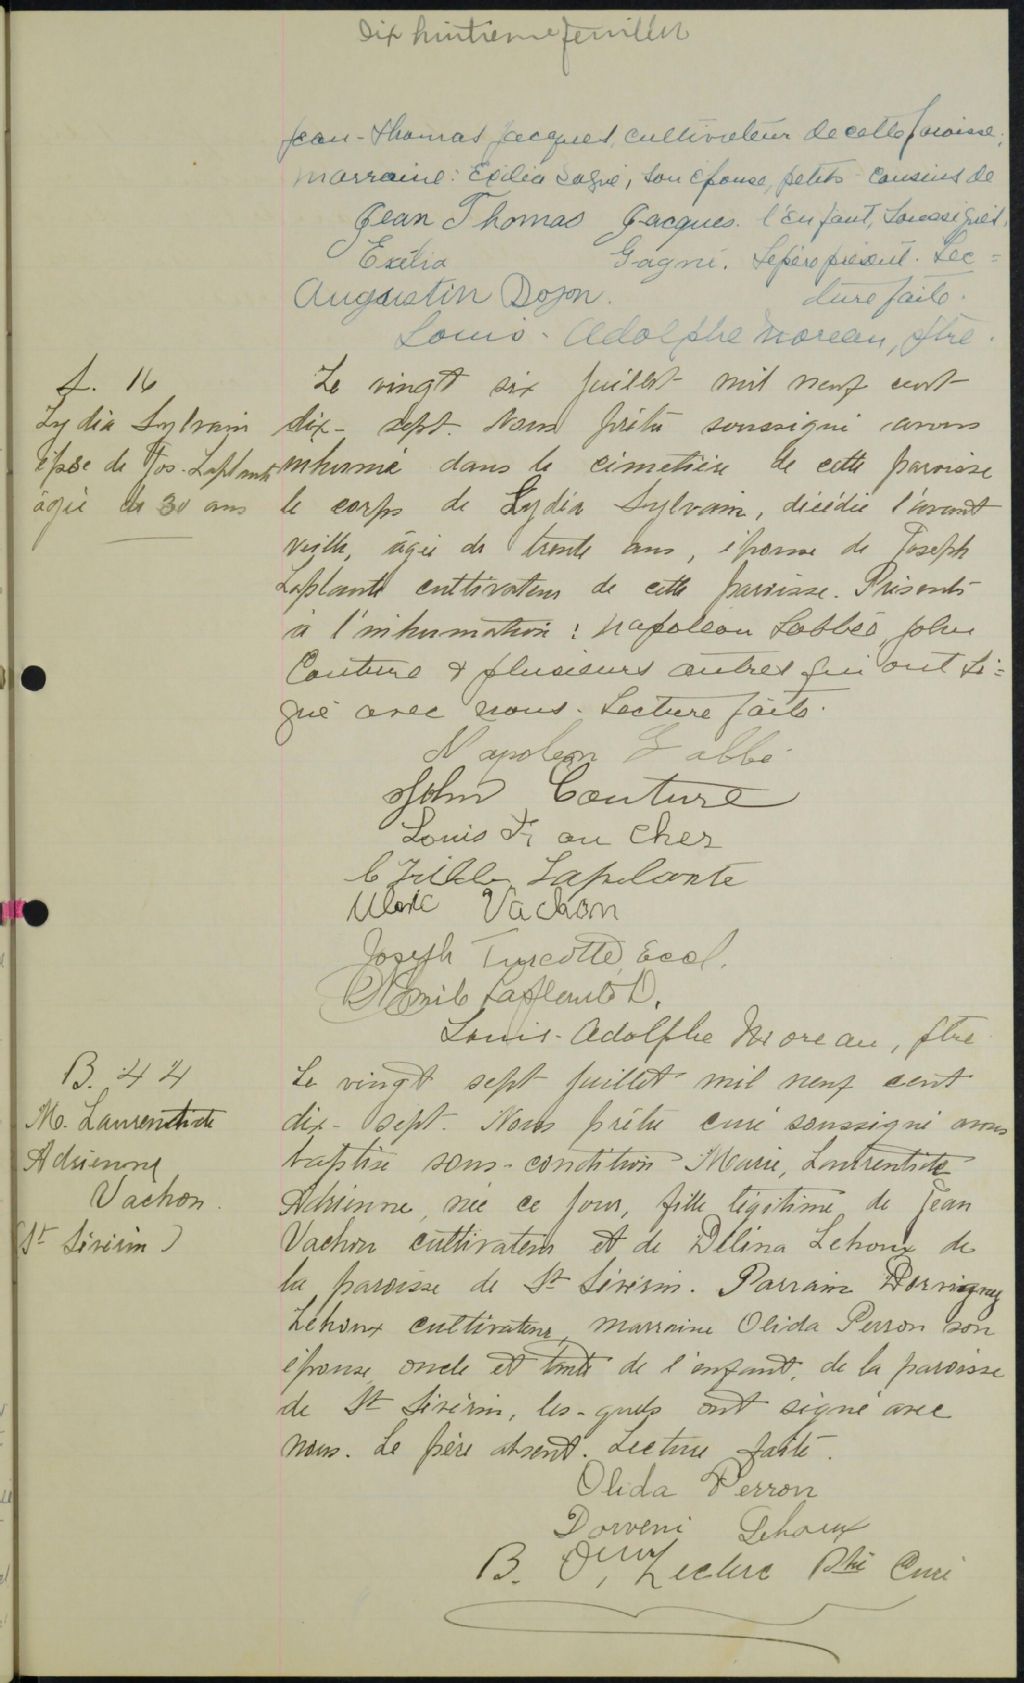 Dix huitieme feuillet
Jean-Thomas Jacques, cultivateur de cette paroisse;
marraine: Exilia Gagné, son épouse, petits cousins de
Jean Thomas Jacques. l'enfant, soussignés.
Exilia Gagné. Le père présent. Lec=
Augustin Doyon. ture faite.
Louis-Adolphe Moreau, ptre.
S. 16
Lydia Sylvain
épse de Jos. Laplante
âgée de 30 ans
Le vingt six juillet mil neuf cent
dix-sept. Nous prêtre soussigné avons
inhumé dans le cimetière de cette paroisse
le corps de Lydia Sylvain, décédée l'avant
veille, âgée de trente ans, épouse de Joseph
Laplante cultivateur de cette paroisse. Présents
à l'inhumation: Napoléon Labbé, John
Couture & plusieurs autres qui ont si=
gné avec nous. Lecture faite.
Napoleon Labbé
John Couture
Louis Fr au cher
Laplante
Vachon
Joseph Turcotte Eccl.
Emile Laplante D.
Louis-Adolphe Moreau, ptre
B. 44
M. Laurentide
Adrienne
Vachon.
(St Séverin)
Le vingt sept juillet mil neuf cent
dix-sept. Nous prêtre curé soussigné avons
baptisé sous-condition Marie, Laurentide
Adrienne, née ce jour, fille légitime de Jean
Vachon cultivateur et de Délina Lehoux de
la paroisse de St Séverin. Parrain
Lehoux cultivateur, marraine Olida Perron son
épouse, oncle et tante de l'enfant, de la paroisse
de St Séverin, les-quels ont signé avec
nous. Le père absent. Lecture faite.
Olida Perron
Dorveni Lehoux
B. Leclerc Ptre Curé